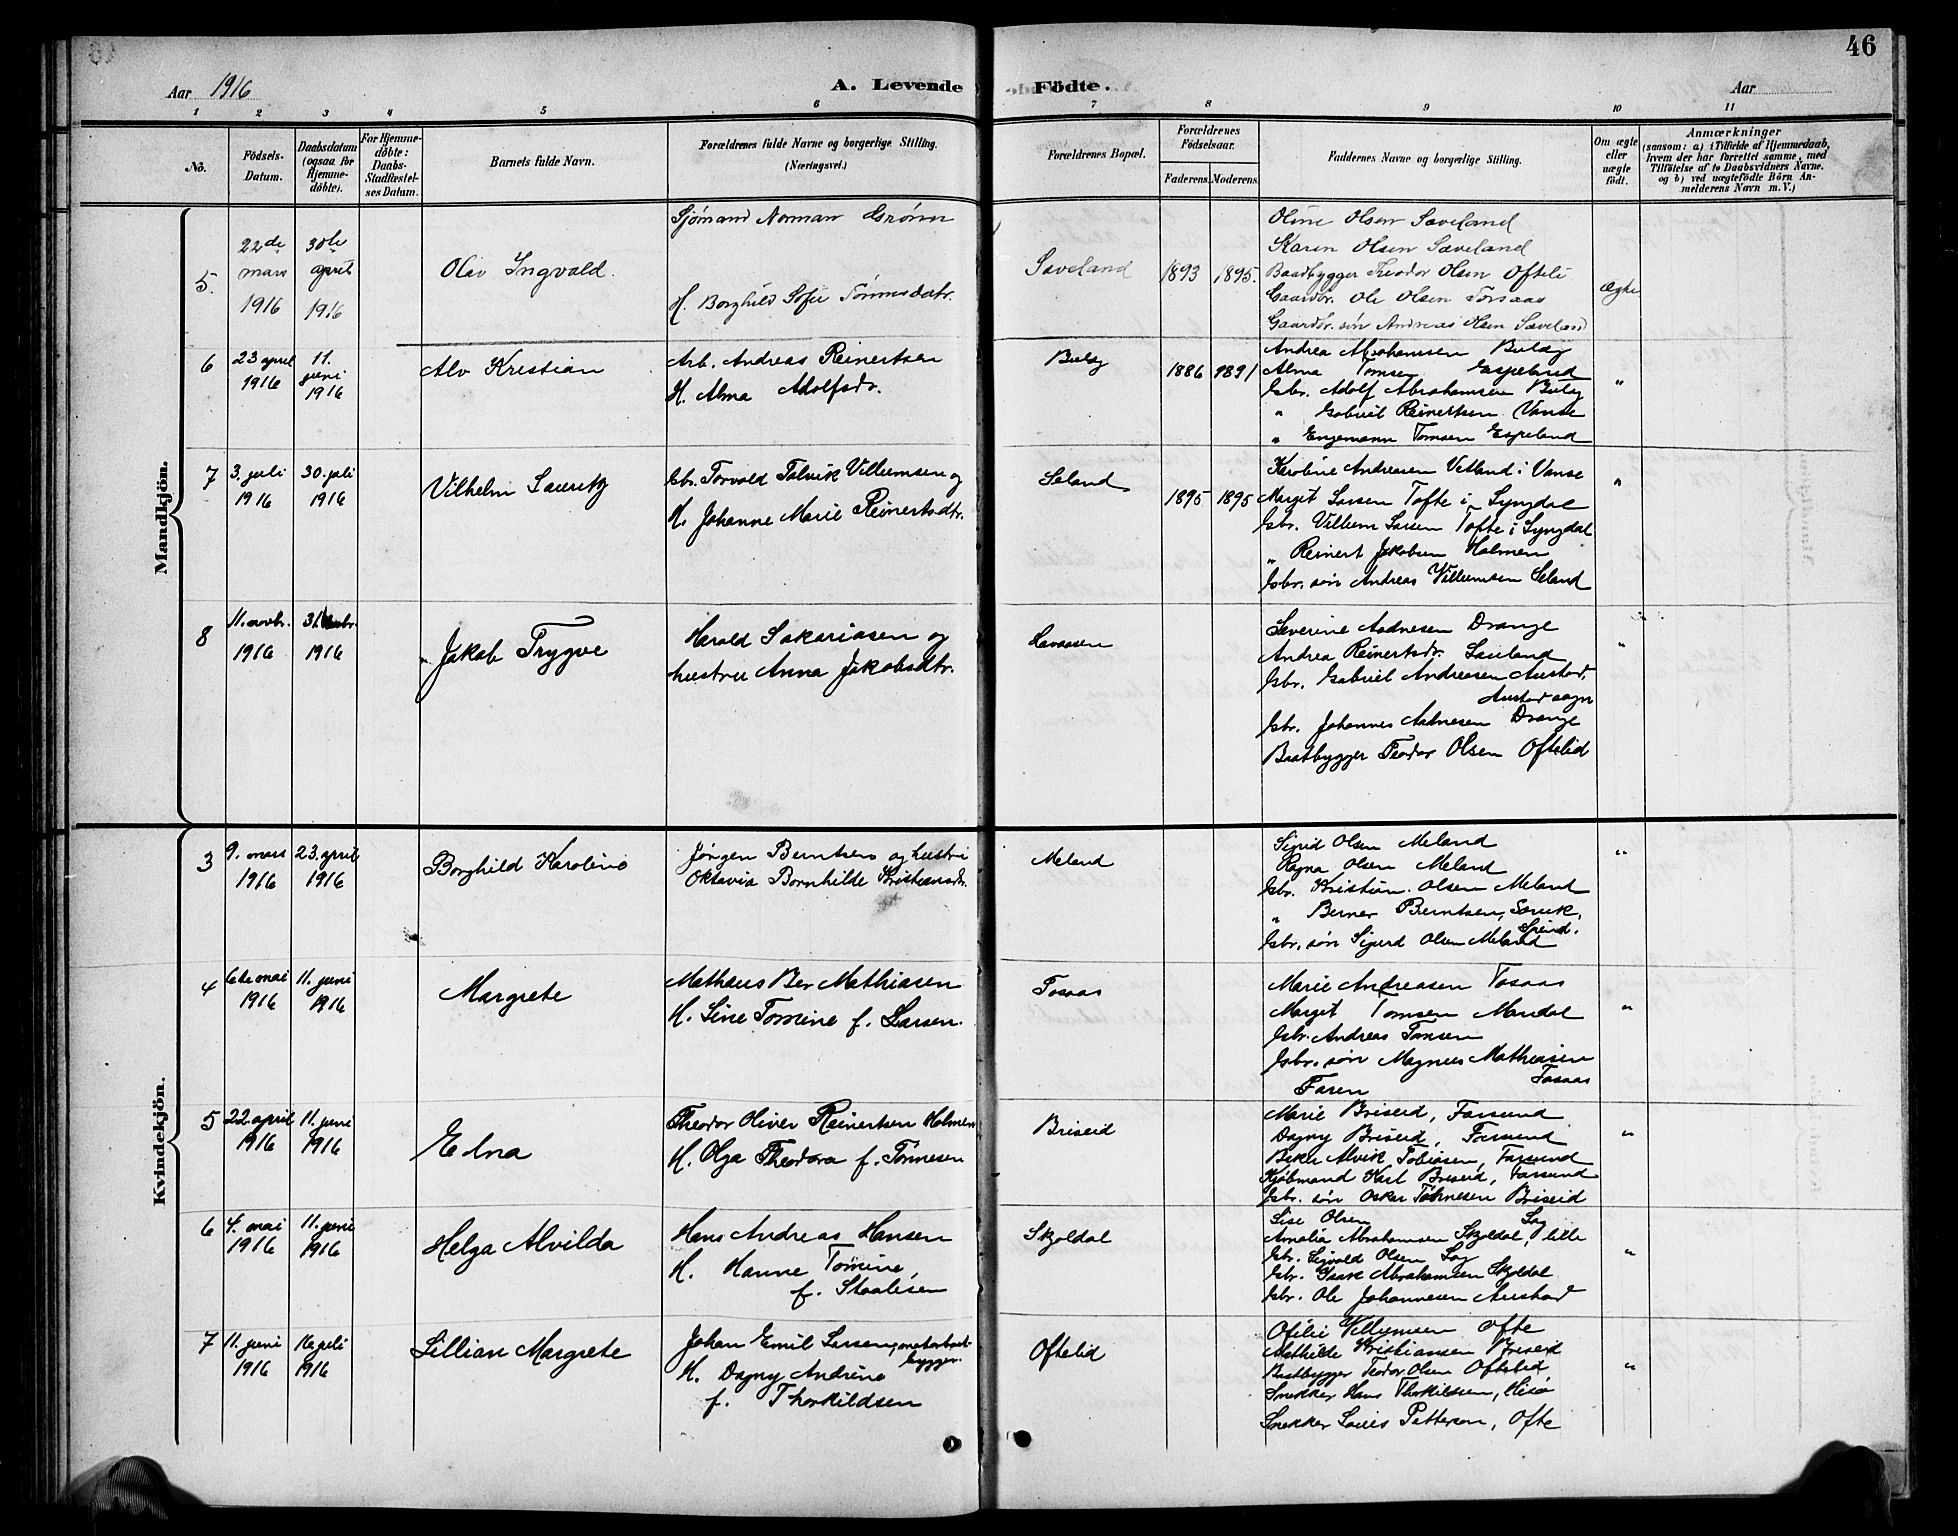 46
Aar 1916
A. Levende Födte.
Aar
1 2 3 4 5 6 7 8 9 10 11
No.
Födsels-Datum.
Daabsdatum (ogsaa for Hjemme-döbte).
For Hjemme-döbte: Daabs-Stadfæstel-ses Datum.
Barnets fulde Navn.
Forældrenes fulde Navne og borgerlige Stilling. (Næringsvei.)
Forældrenes Bopæl.
Forældrenes Födselsaar.
Faderens. Moderens.
Faddernes Navne og borgerlige Stilling.
Om ægte eller uægte födt.
Anmærkninger
(saasom: a) i Tilfælde af Hjemmedaab, hvem der har forrettet samme, med Tilföielse af to Daabsvidners Navne. og b) ved uægtefödte Börn An-melderens Navn m. V.)
Mandkjön.
5.
22de mars 1916
30te april 1916
Olav Ingvald.
Sjömand Norman Grönn
H. Borghild Sofie Tönnesdatr.
Sæveland
1893 1895.
Oline Olsen Sæveland
Karen Olsen Sæveland
Baadbygger Theodor Olsen Ofteli
Gaardbr. Ole Olsen Torsaas
Gaardbr. sön Andreas Olsen Sæveland
Ægte
6
23 april 1916
11. juni 1916
Alv Kristian
Arb. Andreas Reinertsen
H. Alma Adolfsdr.
Buløg
1886 1891
Andrea Abrahamsen Buløg
Alma Tomsen Espeland
Gbr. Adolf Abrahamsen Buløg
" Gabriel Reinertsen Vanse
" Engemann Tomsen Espeland
"
7
3. juli 1916
30. juli 1916
Vilhelm Lauritz
Gbr. Torvald Talvik Villumsen og
H. Johanne Marie Reinertsdtr.
Seland
1895 1895
Karoline Andreasen Vetland i Vanse
Margit Larsen Tofte i Lyngdal
Gbr. Villum Larsen Tofte i Lyngdal
" Reinert Jakobsen Holmen
Gbr. sön Andreas Villumsen Seland
"
8
11. novbr. 1916
31. 1916
Jakob Trygve
Harald Sakariasen og
hustru Anna Jakobsdtr.
Havaasen
Severine Aadnesen Drange
Andrea Reinertsdr. Lauland
Gbr. Gabriel Andreasen Austad,
Austad sogn
Gbr. Johannes Aadnesen Drange
Baatbygger Teodor Olsen Oftelid
"
Kvindekjön.
3
9. mars 1916
23. april 1916
Borghild Karoline
Jörgen Berntsen og hustru
Oktavia Bornhilde Kristiansdr.
Meland
Sigrid Olsen Meland
Ragna Olsen Meland
Gbr. Kristian Olsen Meland
" Berner Berntsen, Sauk,
Spind.
Gbr. sön Sigurd Olsen Meland
"
4
6te mai 1916
11. juni 1916
Margrete
Mathæus Ber Mathiasen
H. Sine Tomine f. Larsen.
Tosaas
Marie Andreasen Tosaas
Margit Tomsen Mandal
Gbr. Andreas Tomsen
Gbr. sön Magnus Mathiasen
Tosaas
Faren
"
5
22. april 1916
11. juni 1916
Edna
Theodor Oliver Reinertsen Holmen
H. Olga Theodora f. Tönnesen
Briseid
Marie Briseid, Farsund
Dagny Briseid, Farsund
Alvik Tobiasen, Farsund
Kjöbmand Karl Briseid, Farsund
Gbr. sön Oskar Tönnesen Briseid
"
6
4. mai 1916
11. juni 1916
Helga Alvilda
Hans Andreas Hansen
H. Hanne Tomine,
f. Staalesen
Skjoldal
Lise Olsen Log
Amalia Abrahamsen Skjoldal, lille
Gbr. Sigvald Olsen Log
Gbr. Isak Abrahamsen Skjoldal
Gbr. Ole Johannesen Austad
"
7
11. juni 1916
16 juli 1916
Lillian Margrete
Johan Emil Larsen, motorbaat-
bygger.
H. Dagny Andrine
f. Thorkildsen
Oftelid
Ofelie Villumsen Ofte
Mathilde Kristiansen Briseid
Baatbygger Teodor Olsen Oftelid
Snekker Hans Thorkildsen, Hisø
Snekker Louis Pettersen, Ofte
"